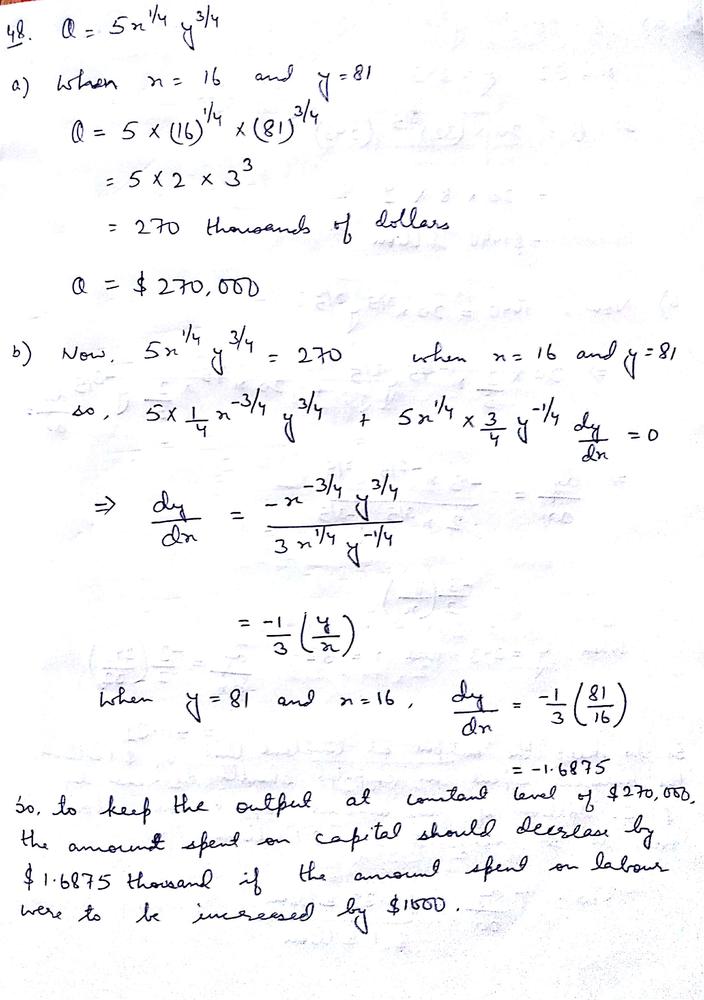 48. Q = 5x^{1/4} y^{3/4}
a) When x = 16 and y = 81
Q = 5 × (16)^{1/4} × (81)^{3/4}
= 5 × 2 × 3^3
= 270 thousands of dollars
Q = $ 270,000
b) Now, 5x^{1/4} y^{3/4} = 270 when x = 16 and y = 81
so, 5 × 1/4 x^{-3/4} y^{3/4} + 5x^{1/4} × 3/4 y^{-1/4} dy/dx = 0
⇒ dy/dx = -x^{-3/4} y^{3/4} / 3 x^{1/4} y^{-1/4}
= -1/3 (y/x)
When y = 81 and x = 16, dy/dx = -1/3 (81/16)
= -1.6875
So, to keep the output at constant level of $270,000,
the amount spent on capital should decrease by
$1.6875 thousand if the amount spent on labour
were to be increased by $1000.